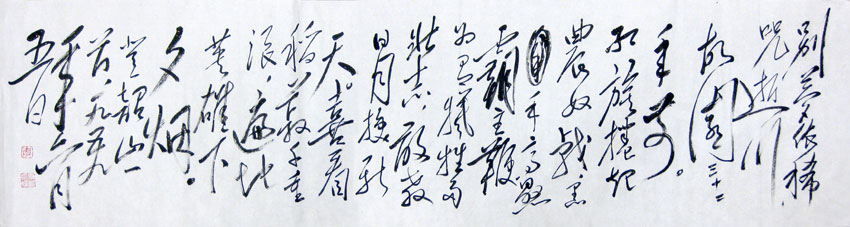 别梦依稀
咒逝川
故园三十二
年前。
红旗捲起
農奴戟，黑
手高懸
霸主鞭
为有牺牲多
壮志，敢教
日月换新
天。喜看
稻菽千重
浪，遍地
英雄下
夕烟。
登韶山一
首 一九五九
年六月
五日